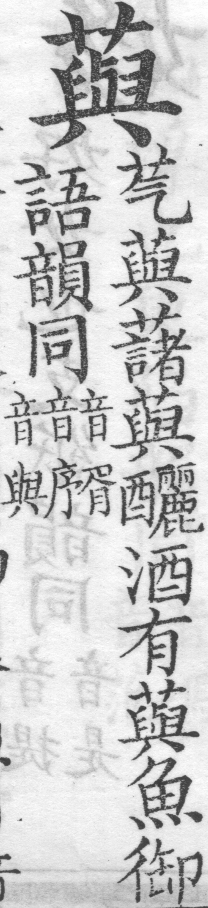 藇
芞藇藷藇釃酒有藇魚御
語韻同
音胥
音序
音與